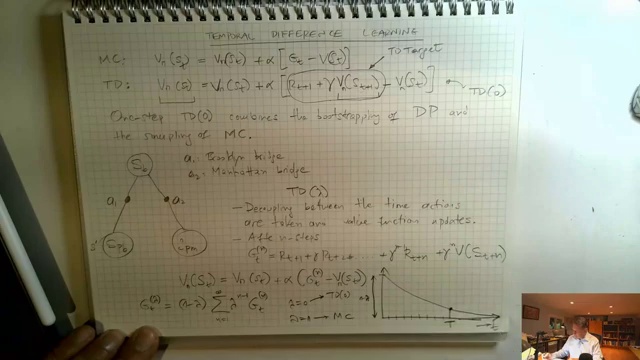 TEMPORAL DIFFERENCE LEARNING
MC: Vπ(St) = Vπ(St) + α [Gt - V(St)]
TD Target
TD: Vπ(St) = Vπ(St) + α [Rt+1 + γ Vπ(St+1) - Vπ(St)]
TD(0)
One-step TD(0) combines the bootstrapping of DP and
the sampling of MC.
a1: Brooklyn bridge
a2: Manhattan bridge
St
a1
a2
s'
TD(λ)
- Decoupling between the time actions
are taken and value function updates.
- After n-steps
Gt(n) = Rt+1 + γ Rt+2 + γ^n-1 Rt+n + γ^n V(St+n)
Vπ(St) = Vπ(St) + α (Gt(n) - Vπ(St))
Gt(λ) = (1-λ) Σ n=1 ∞ λ^n-1 Gt(n)
λ=0 → TD(0)
→ MC
1-λ
T
→ t